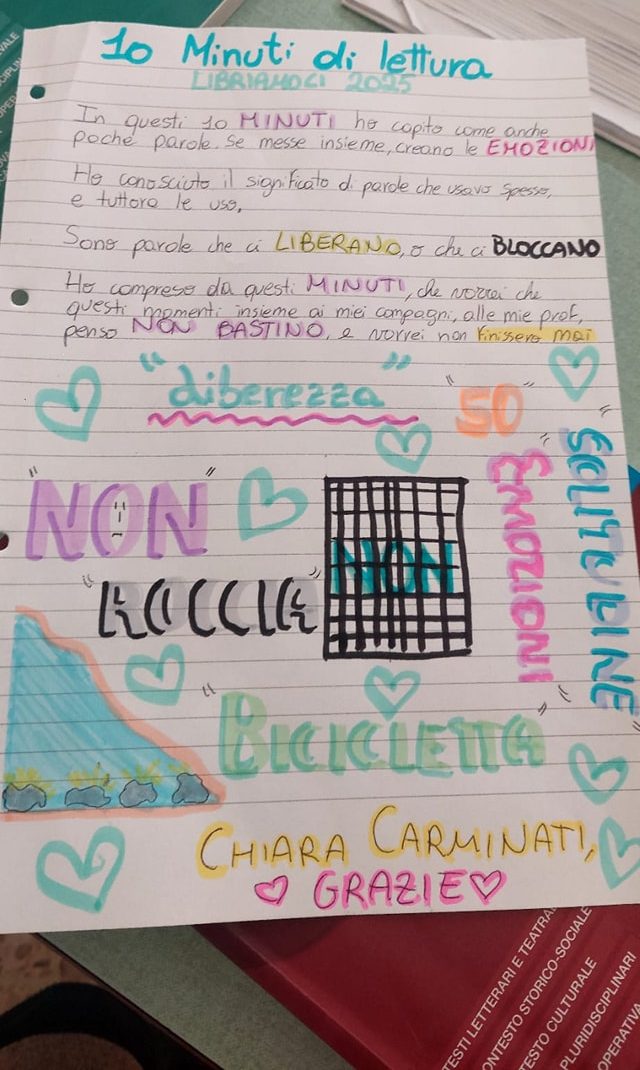 10 Minuti di lettura
LIBRIAMOCI 2025
In questi 10 MINUTI ho capito come anche
poche parole, se messe insieme, creano le EMOZIONI
Ho conosciuto il significato di parole che usavo spesso,
e tuttora le uso,
Sono parole che ci LIBERANO, o che ci BLOCCANO
Ho compreso da questi MINUTI, che vorrei che
questi momenti insieme ai miei compagni, alle mie prof,
penso NON BASTINO, e vorrei non finissero mai
"diberezza"
"SO"
"EMOZIONI"
"SOLITUDINE"
"NON"
NON
"ROCCIA"
"BICICLETTA"
CHIARA CARMINATI,
GRAZIE
TESTI LETTERARI E TEATRA
ONTESTO STORICO-SOCIALE
TESTO CULTURALE
PLURIDISCIPLINARI
OPERATIVA